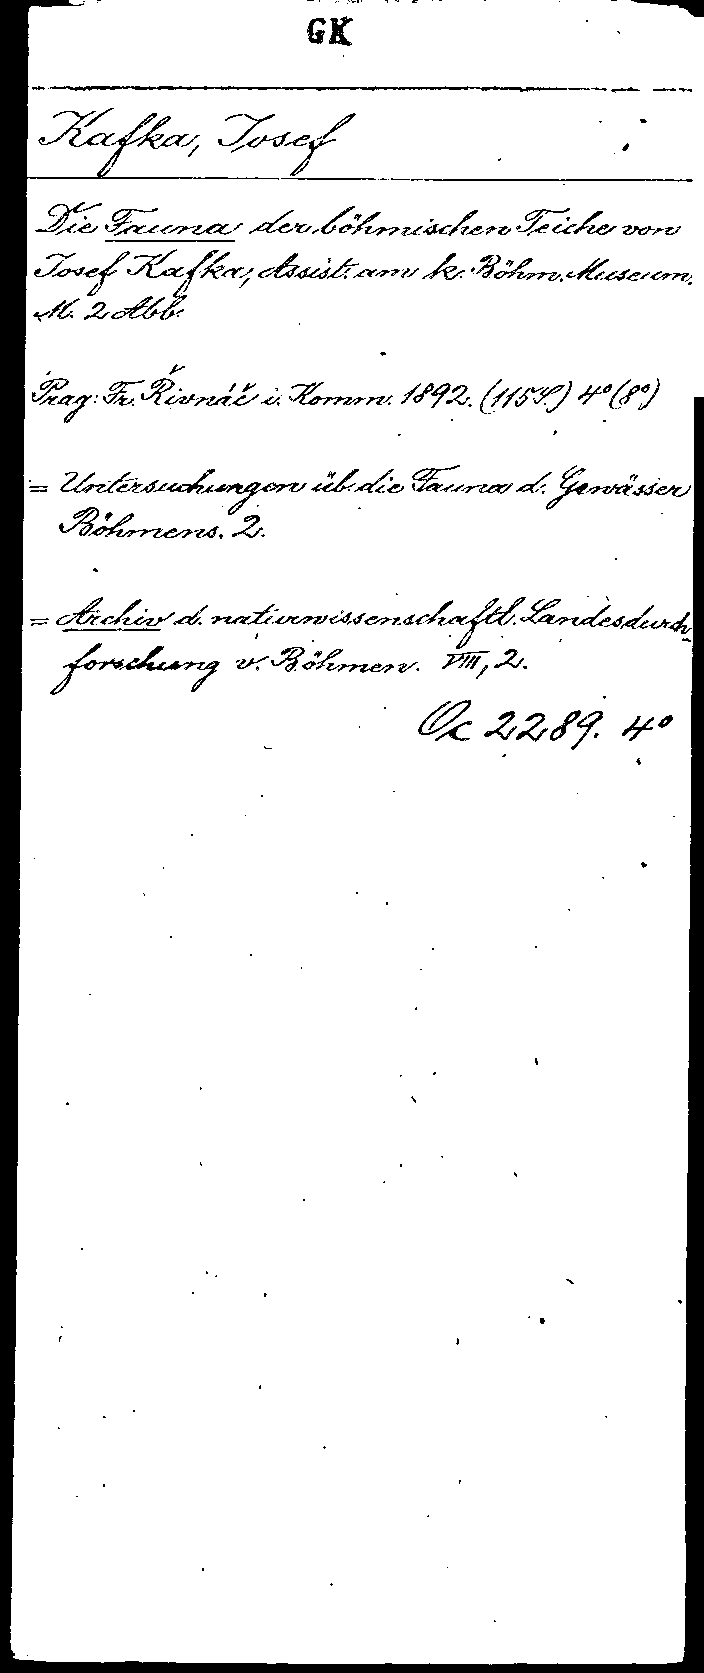 GK
Kafka, Josef
Die Fauna der böhmischen Teiche von
Josef Kafka, Assist. am k. Böhm. Museum.
M. 2 Abb.
Prag: Fr. Řivnáč i. Komm. 1892. (115 S.) 4° (8°)
= Untersuchungen üb. die Fauna d. Gewässer
Böhmens. 2.
= Archiv d. naturwissenschaftl. Landesdurch-
forschung v. Böhmen. VIII, 2.
Oc 2289. 4°